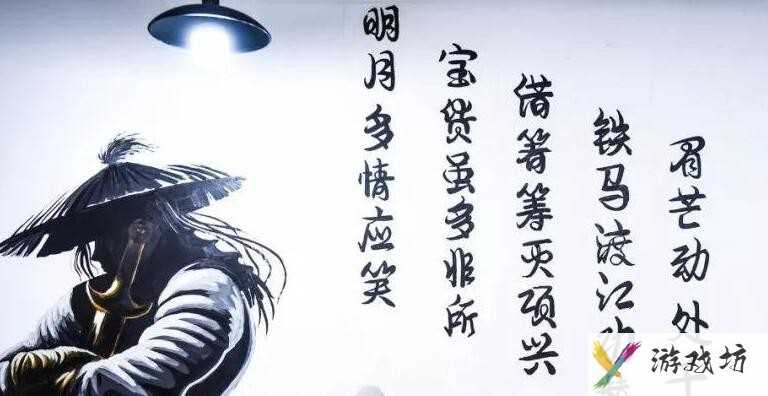 明月多情应笑
宝货虽多非所
借箸筹灭项兴
铁马渡江
眉芒动外
游戏坊